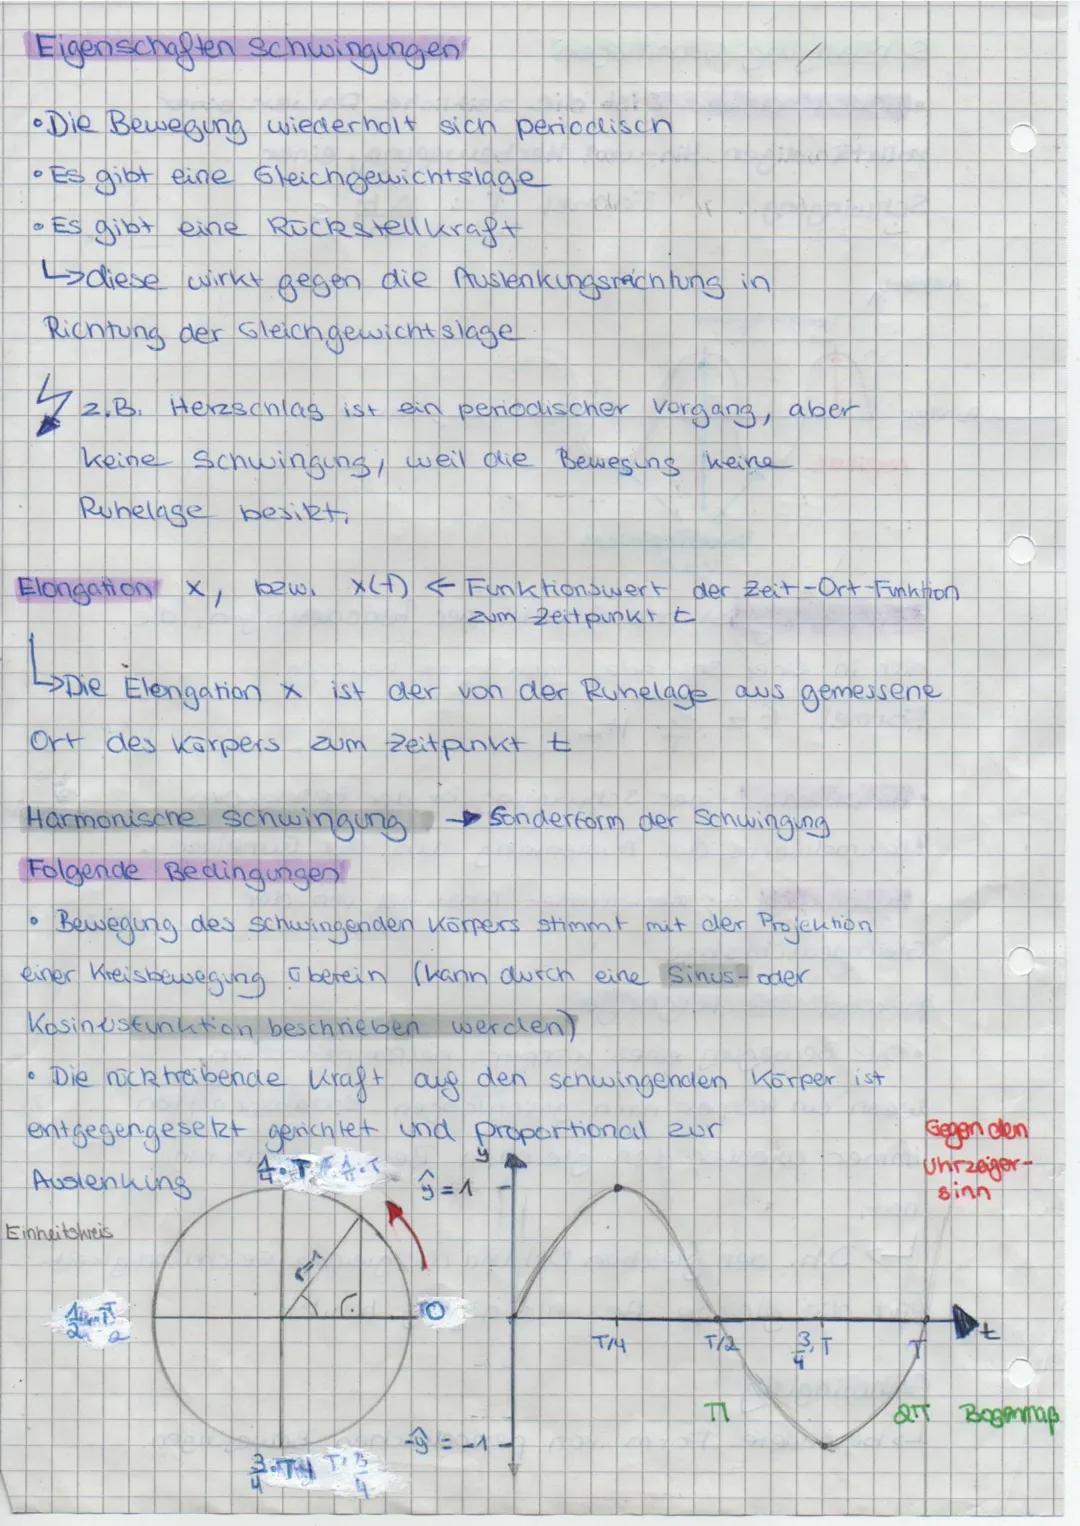 Eigenschaften Schwingungen
• Die Bewegung wiederholt sich periodisch
• Es gibt eine Gleichgewichtslage
• Es gibt eine Rückstellkraft
↳ diese wirkt gegen die Auslenkungsrichtung in
Richtung der Gleichgewichtslage
z.B. Herzschlag ist ein periodischer Vorgang, aber
keine Schwingung, weil die Bewegung keine
Ruhelage besitzt.
Elongation x, bzw. x(t) ← Funktionswert der Zeit-Ort-Funktion
zum Zeitpunkt t
↳ Die Elongation x ist der von der Ruhelage aus gemessene
Ort des Körpers zum Zeitpunkt t
Harmonische Schwingung → Sonderform der Schwingung
Folgende Bedingungen
• Bewegung des schwingenden Körpers stimmt mit der Projektion
einer Kreisbewegung überein (kann durch eine Sinus- oder
Kosinusfunktion beschrieben werden)
• Die rücktreibende Kraft auf den schwingenden Körper ist
entgegengesetzt gerichtet und proportional zur
Auslenkung
Gegen den
Uhrzeiger-
sinn
y
ŷ = 1
Einheitskreis
r=1
0
t
T/4
T/2
3/4·T
T
π
2π
Bogenmaß
-ŷ = -1